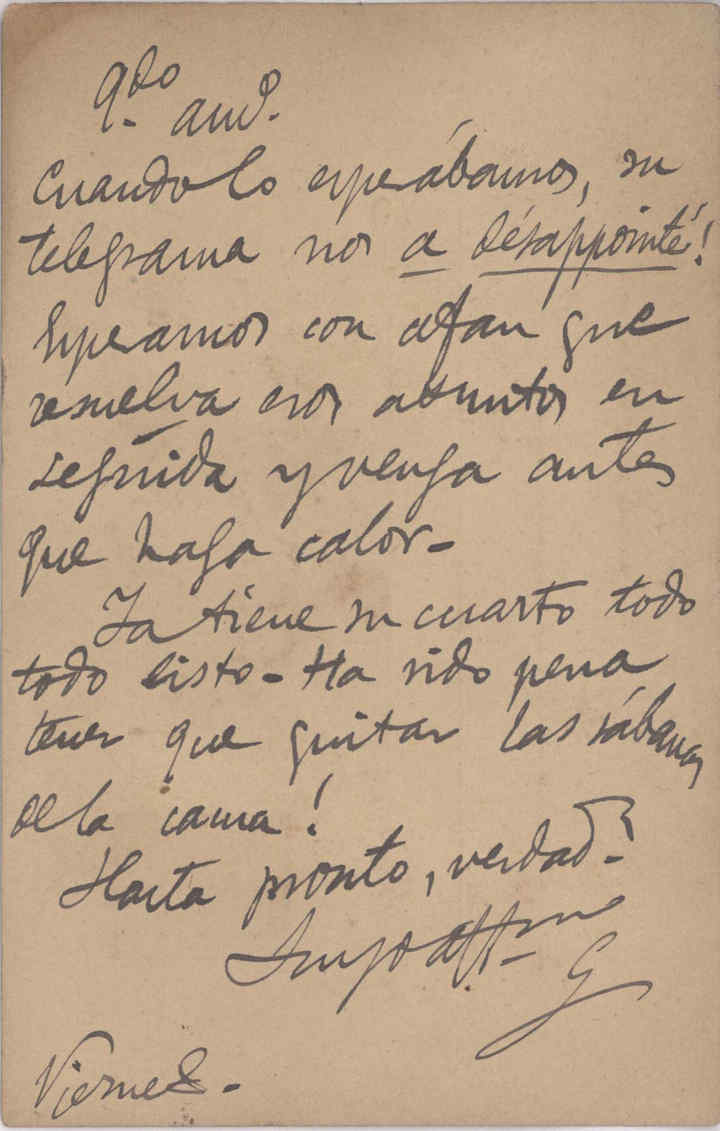 Qdo. amº.
Cuando lo esperábamos, su
telegrama nos a désappointé!
Esperamos con afan que
resuelva esos asuntos en
seguida y venga antes
que haga calor-
Ya tiene su cuarto todo
todo listo- Ha sido pena
tener que quitar las sábanas
de la cama!
Hasta pronto, verdad?
Suyo affmo
G
Viernes-